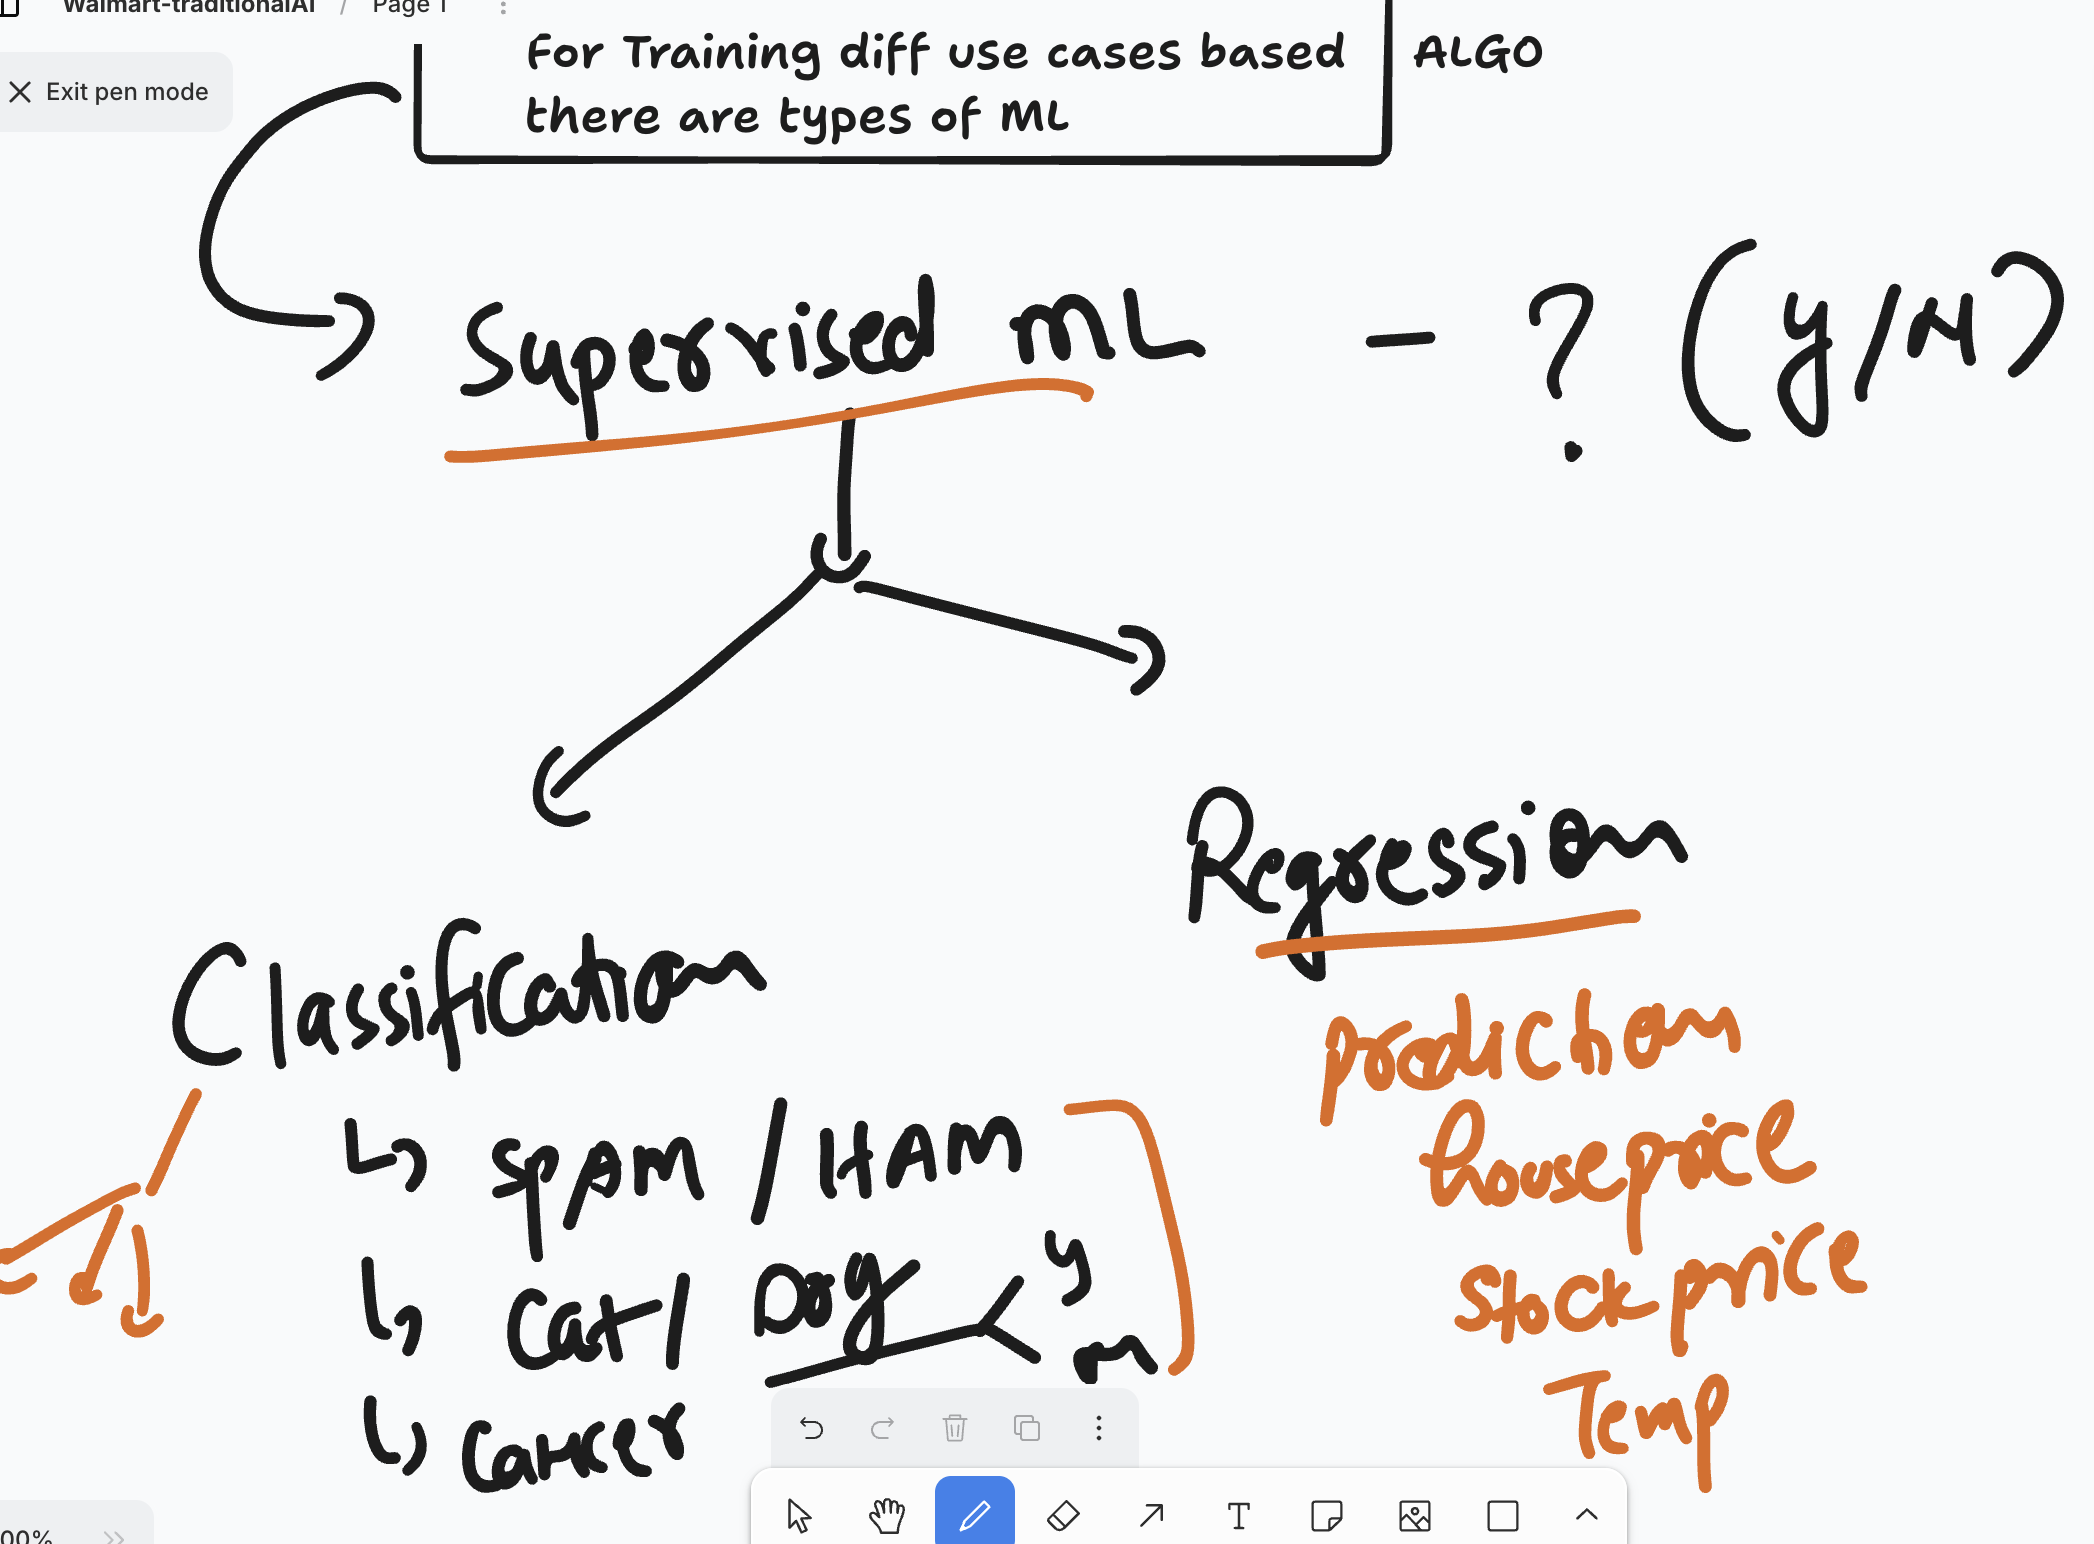 Walmart-traditionalAI / Page 1
Exit pen mode
For Training diff use cases based
there are types of ML
ALGO
Supervised ML - ? (Y/N)
Classification
SPAM / HAM
Cat / Dog
y
m
Cancer
Regression
prediction
house price
Stock price
Temp
00%